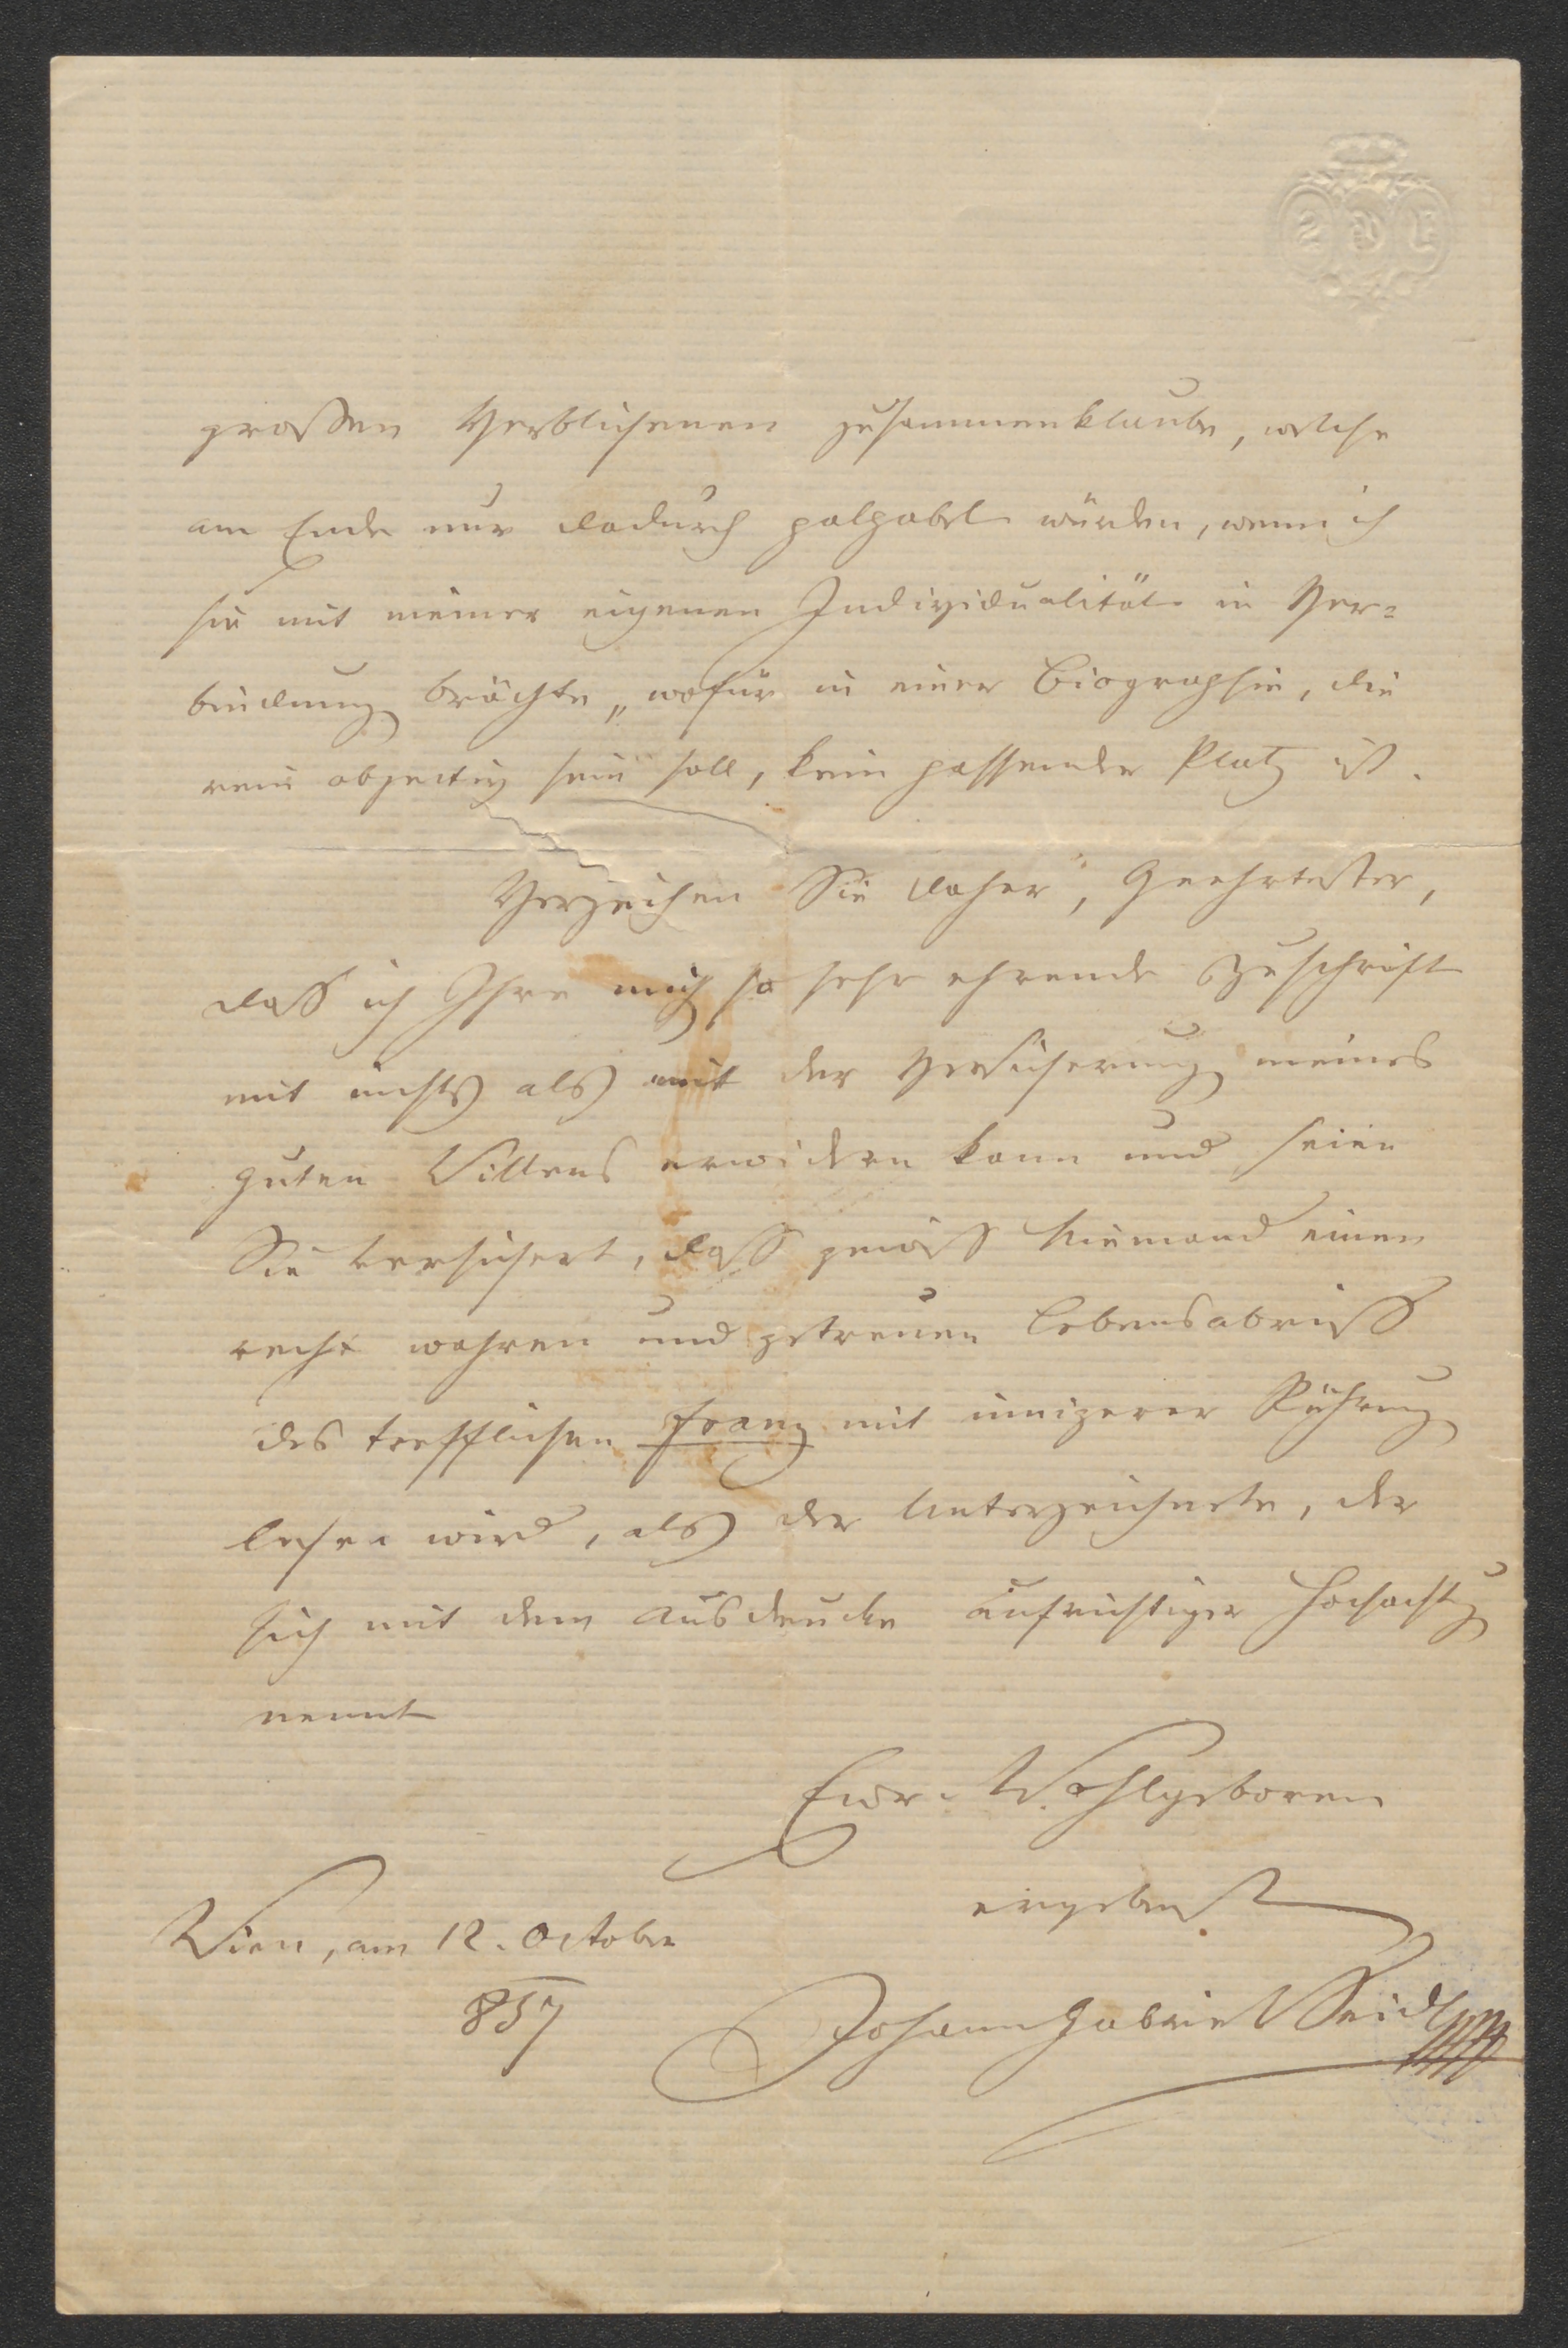 großen Verblichenen zusammenklaube, welche
am Ende nur dadurch palpabel würden, wenn ich
sie mit meiner eigenen Individualität in Ver=
bindung brächte, wofür in einer Biographie, die
rein objectiv sein soll, kein passender Platz ist.
Verzeihen Sie daher, Geehrtester,
daß ich Ihre mich so sehr ehrende Zuschrift
mit nichts als mit der Versicherung meines
guten Willens erwidern kann und seien
Sie versichert, daß gewiß Niemand einen
recht wahren und getreuen Lebensabriß
des trefflichen Franz mit innigerer Rührung
lesen wird, als der Unterzeichnete, der
sich mit dem Ausdrucke aufrichtiger Hochachtg
nennt
Euer Wohlgeboren
ergebenst
Wien, am 12. October
857
Johann Gabriel Seidl